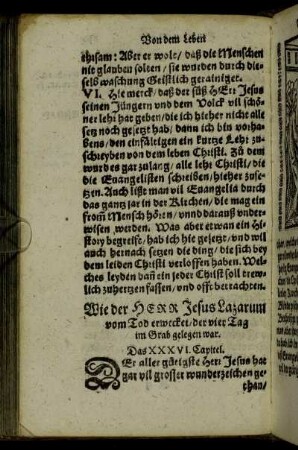 Von dem Leben
thisam: Aber er wolt/ daß die Menschen
nit glauben solten/ sie wurden durch die-
sels waschung Geistlich gerainiget.
VI. Hie merck/ daß der süß HErr Jesus
seinen Jüngern vnd dem Volck vil schö-
ner lehr hat geben/ die ich hieher nicht alle
setz noch gesetzt hab/ dann ich bin vorha-
bens/ den einfältigen ein kurtze Lehr zu-
schreyben von dem leben Christi. Zu dem
wurd es gar zulang/ alle lehr Christi/ die
die Euangelisten schreiben/ hieher zuse-
tzen. Auch lißt man vil Euangelia durch
das gantz jar in der Kirchen/ die mag ein
from̃ Mensch hören/ vnnd darauß vnder-
wisen werden. Was aber etwan ein Hi-
story begreiffe/ hab ich hie gesetzt/ vnd will
auch hernach setzen die ding/ die sich bey
dem leiden Christi verloffen haben. Wel-
ches leyden dañ ein jeder Christ soll trew-
lich zuhertzen fassen/ vnd offt betrachten.
Wie der HERR Jesus Lazarum
vom Tod erwecket/ der vier Tag
im Grab gelegen war.
Das XXXVI. Capitel.
Der aller gütigste Herr Jesus hat
gar vil grosser wunderzeichen ge-
than/